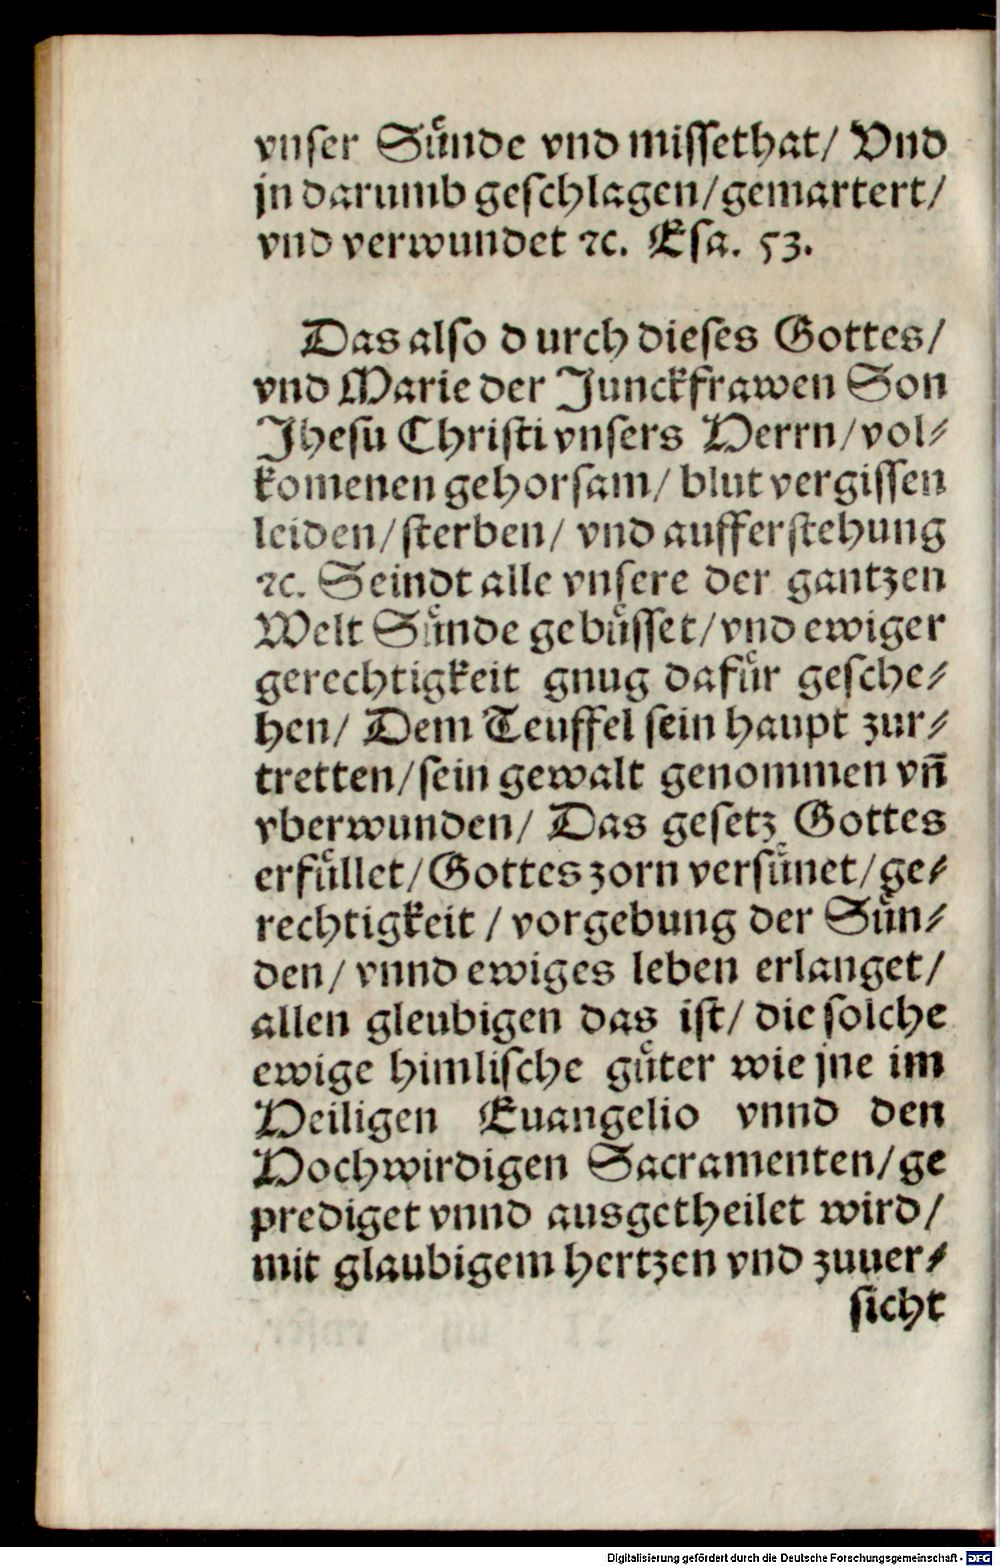 vnser Suͤnde vnd missethat/ Vnd
jn darumb geschlagen/gemartert/
vnd verwundet ꝛc. Esa. 53.
Das also d urch dieses Gottes/
vnd Marie der Junckfrawen Son
Jhesu Christi vnsers Herrn/vol⸗
komenen gehorsam/ blut vergissen
leiden/sterben/ vnd aufferstehung
ꝛc. Seindt alle vnsere der gantzen
Welt Suͤnde gebuͤsset/vnd ewiger
gerechtigkeit gnug dafuͤr gesche⸗
hen/ Dem Teuffel sein haupt zur⸗
tretten/sein gewalt genommen vñ
vberwunden/ Das gesetz Gottes
erfuͤllet/Gottes zorn versuͤnet/ge⸗
rechtigkeit / vorgebung der Suͤn⸗
den/ vnnd ewiges leben erlanget/
allen gleubigen das ist/ die solche
ewige himlische guͤter wie jne im
Heiligen Euangelio vnnd den
Hochwirdigen Sacramenten/ge
prediget vnnd ausgetheilet wird/
mit glaubigem hertzen vnd zuuer⸗
sicht
Digitalisierung gefördert durch die Deutsche Forschungsgemeinschaft - DFG